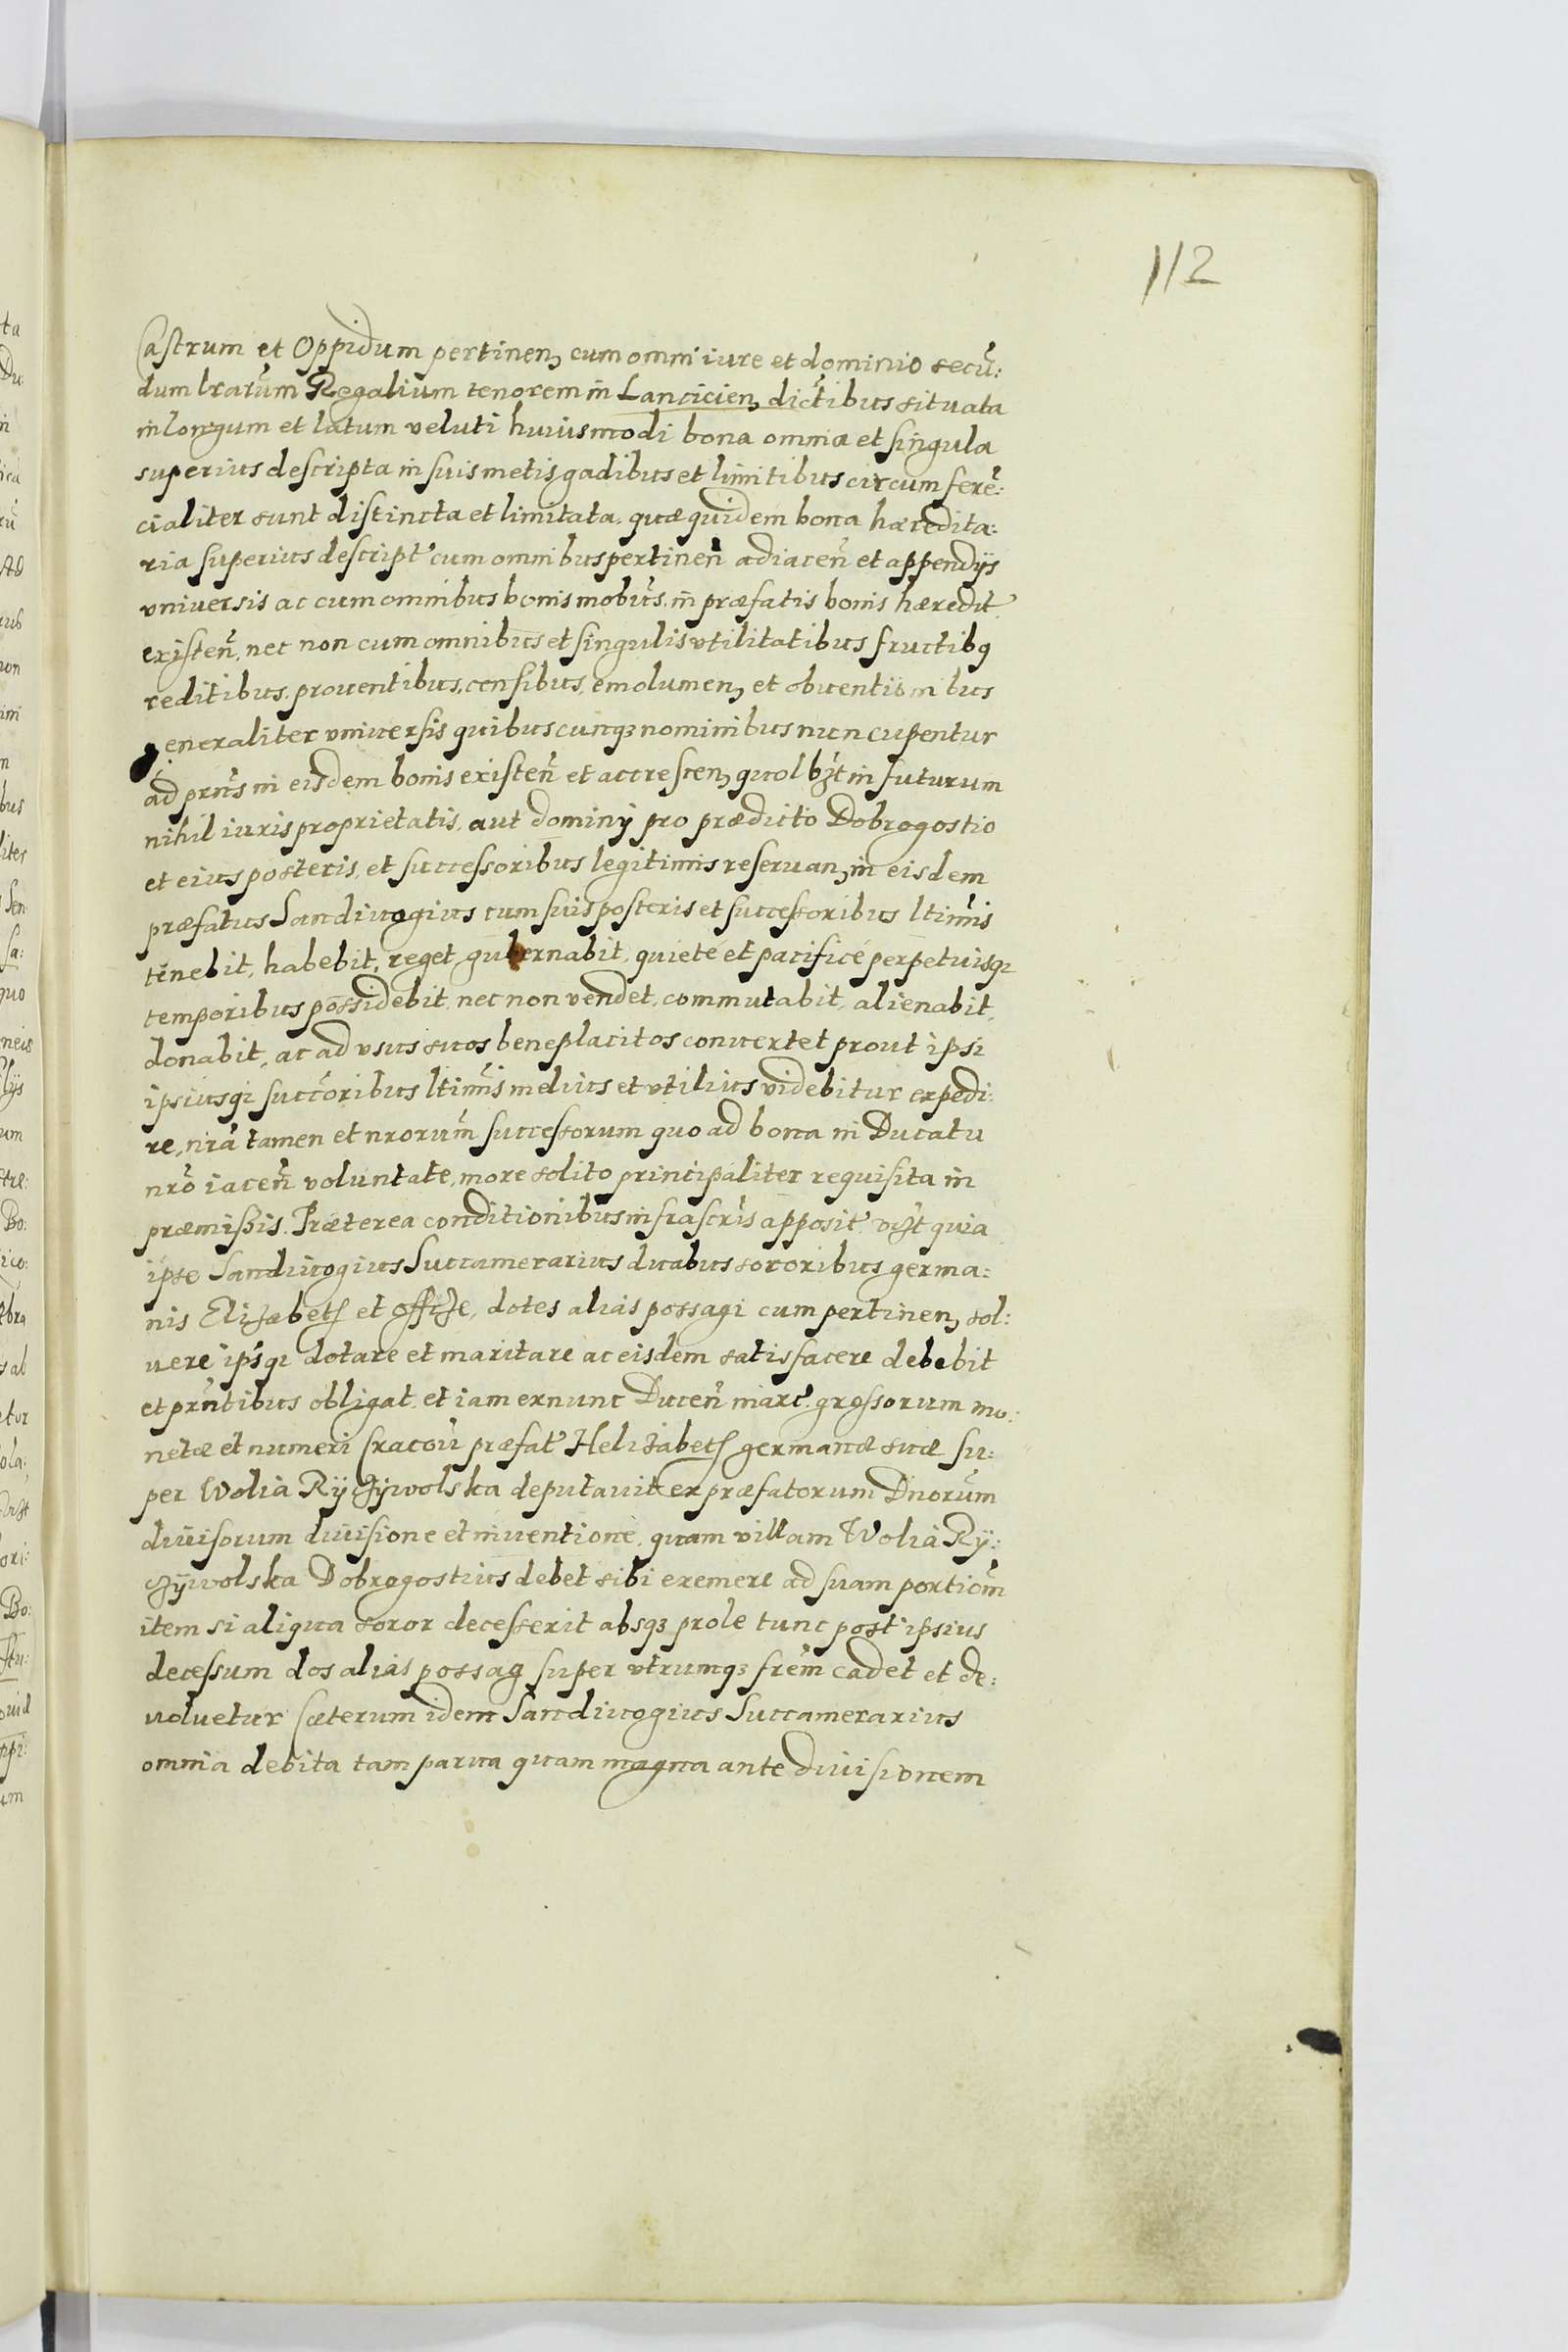 112
Castrum et Oppidum pertinen, cum omni iure et dominio secū:
dum lrarūm Regalium tenorem in Lancicien, dictibus situata
in longum et latum veluti huiusmodi bona omnia et singula
superius descripta in suis metis gadibus et limitibus circum ferē:
cialiter sunt distincta et limitata. quæ quidem bona hæredita:
ria superius descript cum omnibus pertinen̄ adiacen̄ et appendijs
vniuersis ac cum omnibus bonis mobūs. in præfatis bonis hæredit
existen̄, nec non cum omnibus et singulis vtilitatibus fructibq
reditibus. prouentibus, censibus, emolumen, et obuentionibus
generaliter vniuersis quibuscunqȝ nominibus nuncupentur
ad prn̄s in eisdem bonis existen̄ et accrescen, quolbȝt in futurum
nihil iuris proprietatis. aut dominij pro prædicto Dobrogostio
et eius posteris. et successoribus legitimis reseruan, in eisdem
præfatus Sandiuogius cum suis posteris et successoribus ltimis
tenebit, habebit, reget gubernabit, quiete et pacifice perpetuisqȝ
temporibus possidebit. nec non vendet, commutabit, alienabit,
donabit, ac ad vsus suos beneplacitos conuertet prout ipsi
ipsiusqȝ succoribus ltimis melius et vtilius videbitur expedi:
re, nrā tamen et nrorum successorum quo ad bona in Ducatu
nrō iacen̄ voluntate, more solito principaliter requisita in
præmissis. Præterea conditionibus infrascris apposit vȝt quia
ipse Sandiuogius Succamerarius duabus sororibus germa:
nis Elizabeth et Offize, dotes alias possagi cum pertinen, sol:
uere ipsqȝ dotare et maritare ac eisdem satisfacere debebit
et prn̄tibus obligat. et iam exnunc Ducen̄ marc. grossorum mo:
netæ et numeri Cracoū præfat Helizabeth germanæ suæ su:
per Wolia Ryczywolska deputauit ex præfatorum Dnorum
diuisorum diuisione et inuentione. quam villam Wolia Ry:
czywolska Dobrogostius debet sibi exemere ad suam portiōm
item si aliqua soror decesserit absqȝ prole tunc post ipsius
decessum dos alias possag super vtrumqȝ frēm cadet et de:
uoluetur Cæterum idem Sandiuogius Succamerarius
omnia debita tam parua quam magna ante diuisionem